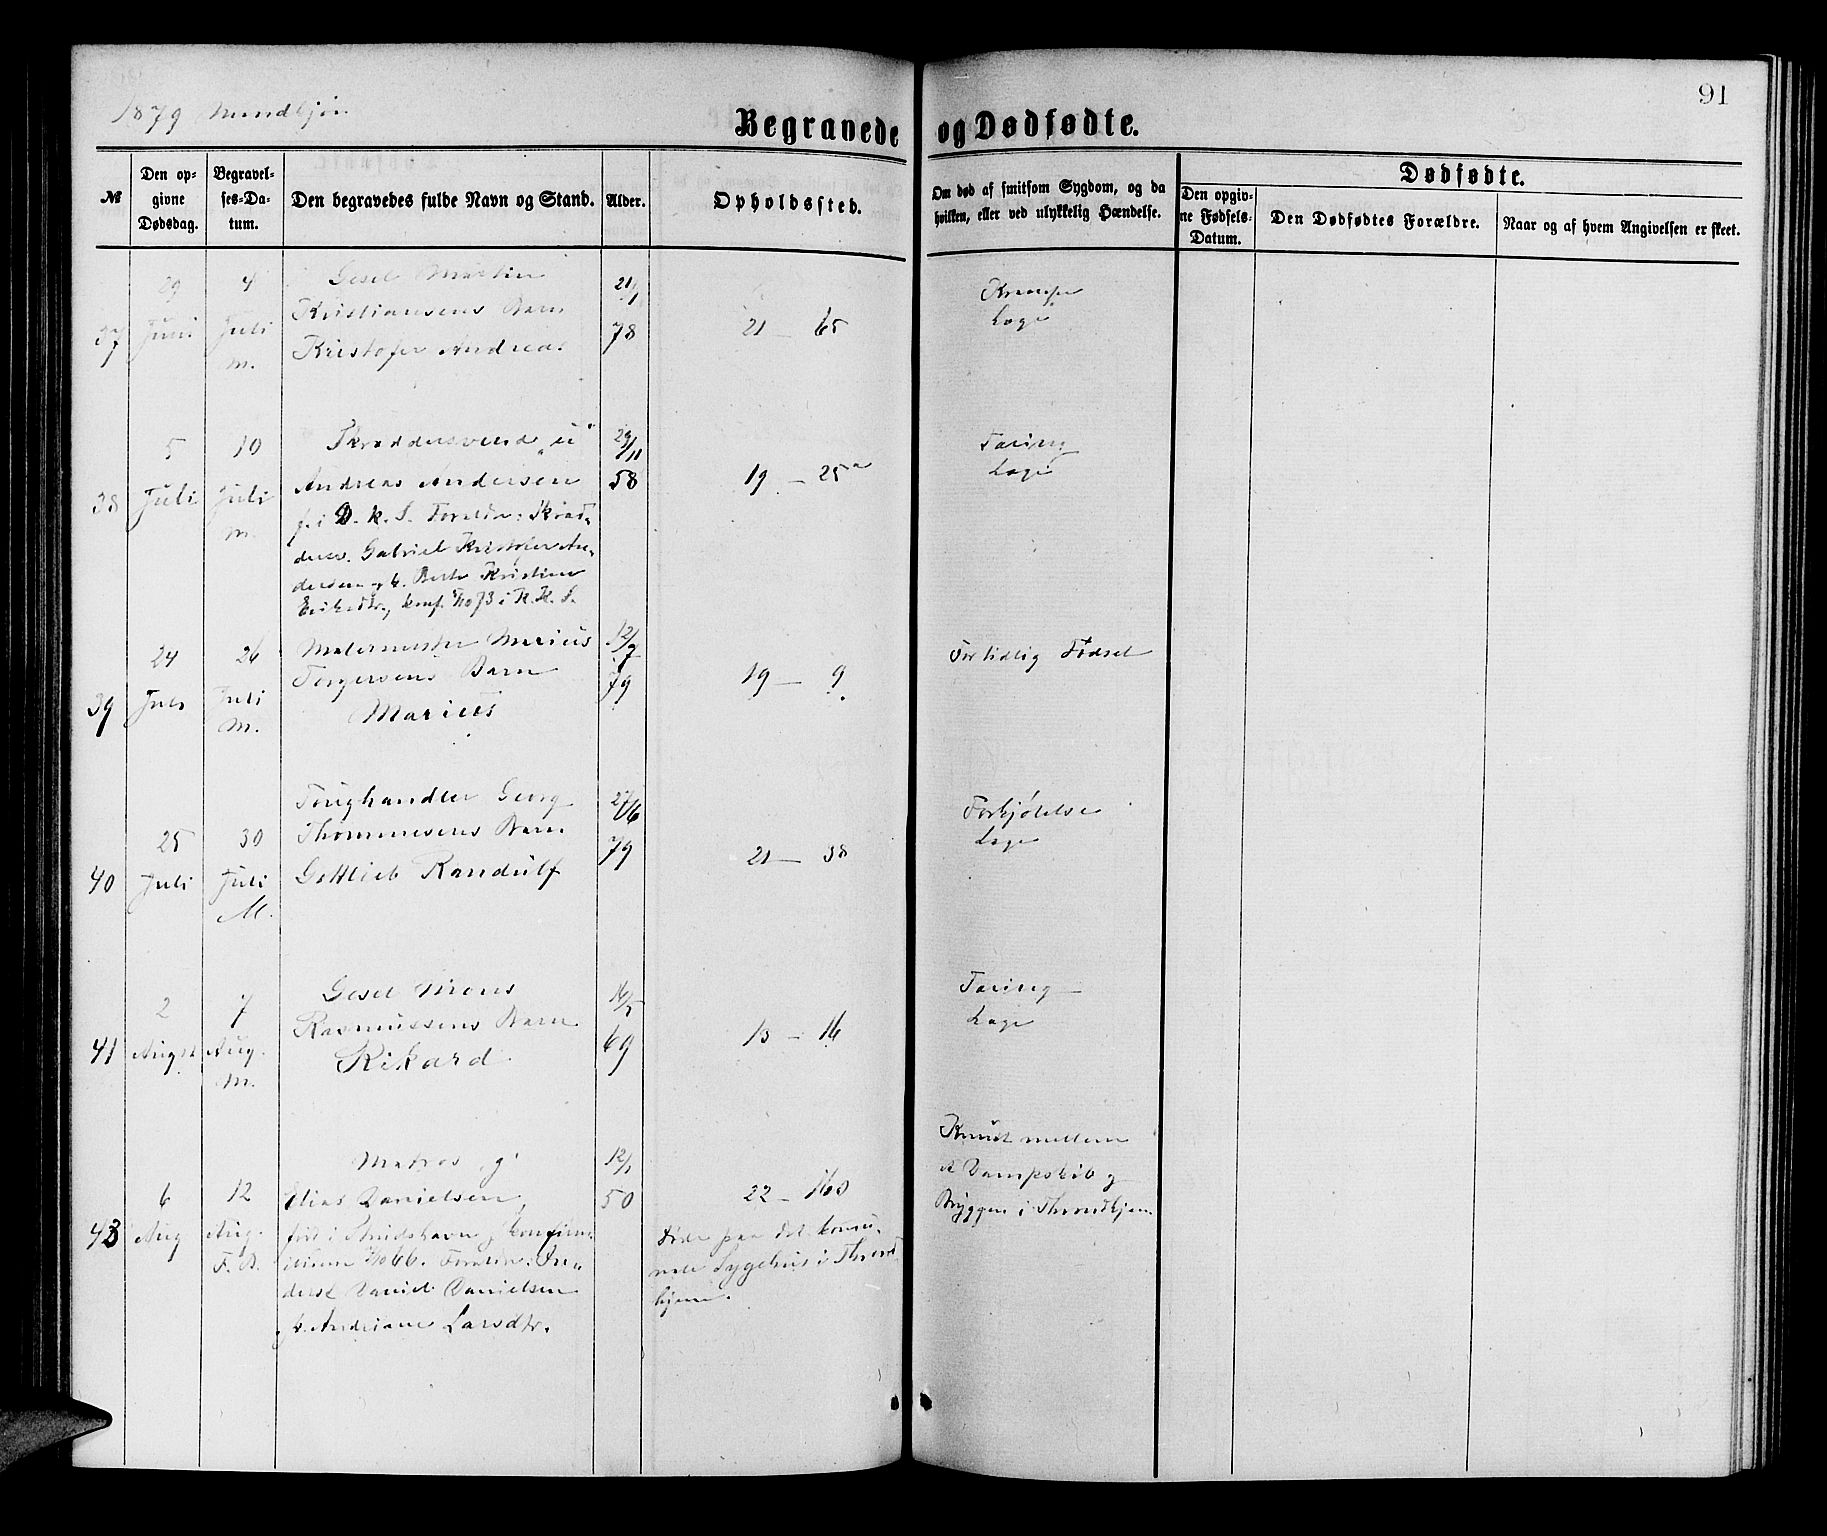 91
1879 Mandkjøn
Begravede og Dødfødte.
№
Den opgivne Dødsdag.
Begravelses-Datum.
Den begravedes fulde Navn og Stand.
Alder.
Opholdssted.
Om død af smitsom Sygdom, og da hvilken, eller ved ulykkelig Hændelse.
Dødfødte.
Den opgivne Fødsels-Datum.
Den Dødfødtes Forældre.
Naar og af hvem Angivelsen er skeet.
37
29 Juni
4 Juli M.
Gesel Martin
Kristiansens Barn
Kristofer Andreas
21/1 78
21 – 65
Krampe
Læge
38
5 Juli
10 Juli M.
Skræddersvend „u"
Andreas Andersen
f. i D. k. S. Foreldr: Skræd-
ders. Gabriel Kristofer An-
dersen og k. Berte Kristine
konf. 73 i K. K. S.
29/11 58
19 – 25a
Tæring
Læge
39
24 Juli
26 Juli M.
Malermester Marius
Torgersens Barn
Marius
12/7 79
19 – 9
For tidlig Fødsel
40
25 Juli
30 Juli M.
Georg
Thommesens Barn
Gottlieb Randulf
27/6 79
21 – 38
Forkjølelse
Læge
41
2 August
7 Aug. M.
Gesel Mons
Rasmussens Barn
Rikard
16/5 69
13 – 16
Tæring
Læge
43
6 Aug
12 Aug.
Matros „g"
Elias Danielsen,
født i og konfirm.
66. Foreldr:
Daniel Danielsen
og k. Andriane Larsdtr.
12/1 50
22 – 160
Døde paa det kommu-
nale Sygehus i Thrond
hjem.
Knust mellem
et Dampskib og
Bryggen i Throndhjem